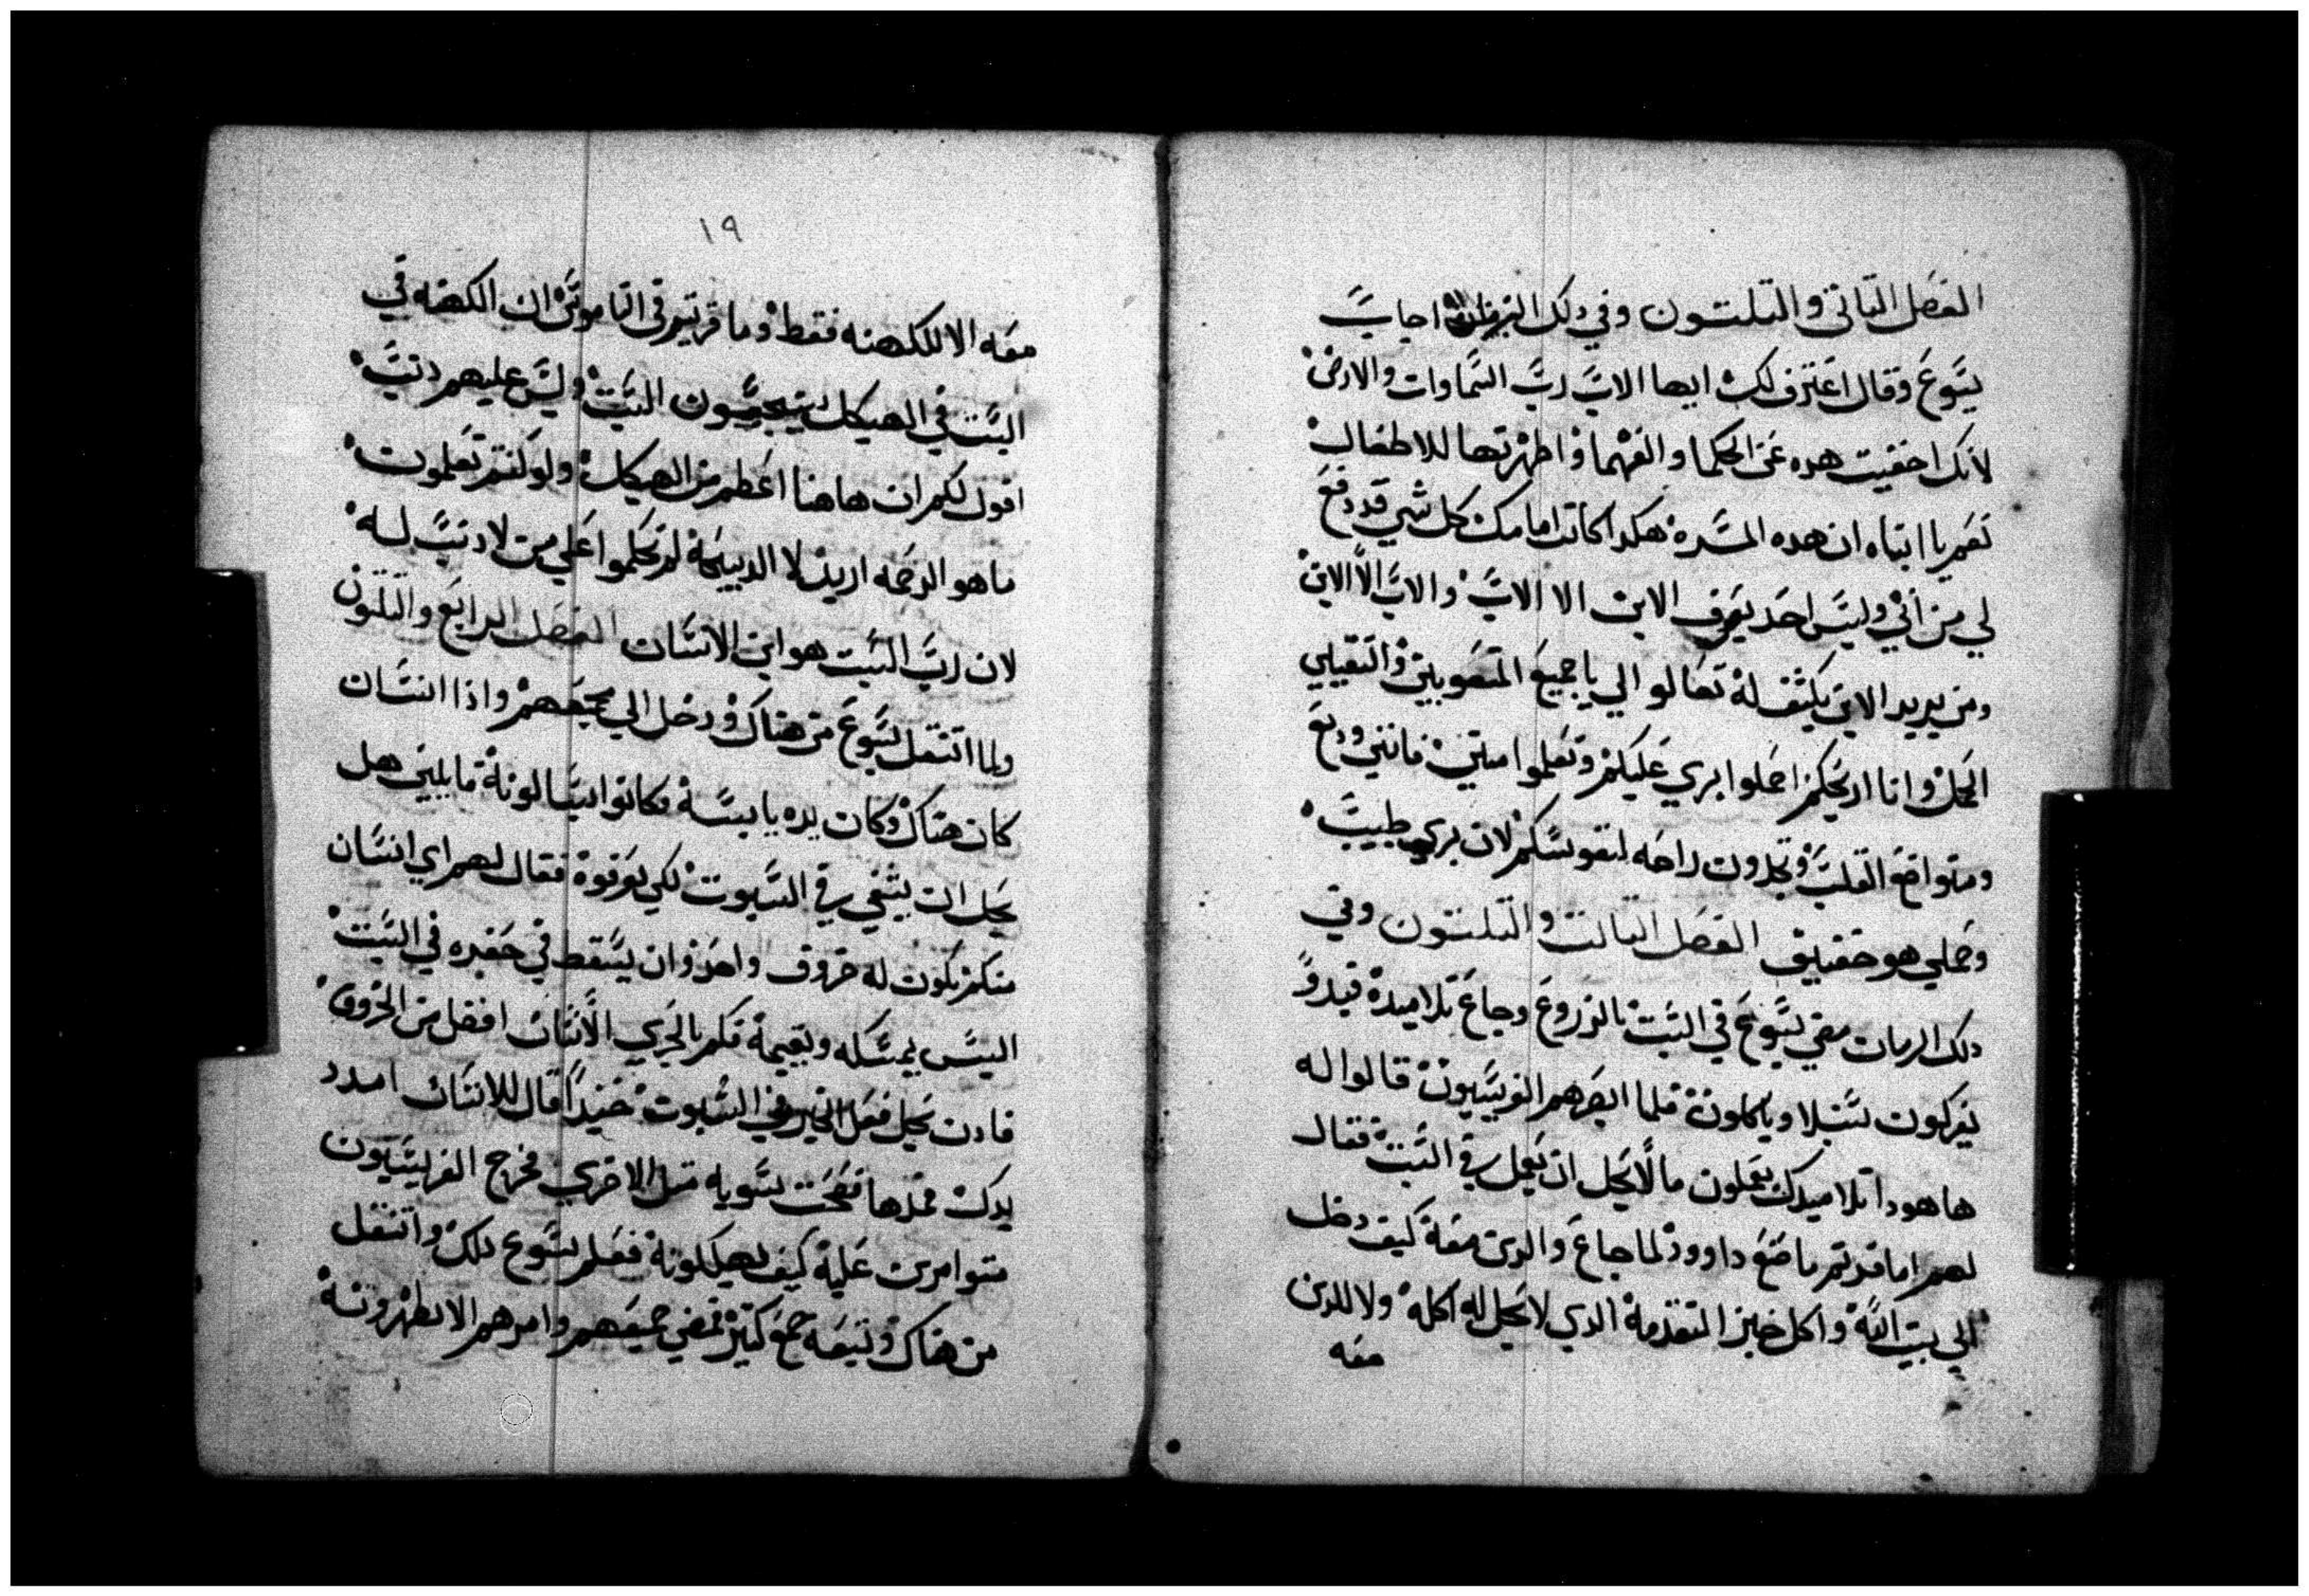 الفصل التاني والتلتون وفي دلك الزمان اجاب
يسوع وقال اعترف لك ايها الاب رب السماوات والارض
لانك اخفيت هده عن الحكما والفهما واظهرتها للاطفال
نعم يا ابتاه ان هده المسره هكدا كانت امامك كل شي قد دفع
لي من ابي وليس احد يعرف الابن الا الاب والاب الا الابن
ومن يريد الابن يكشف له تعالوا الي يا جميع المتعوبين والتقيلي
الحمل وانا اريحكم احملوا نيري عليكم وتعلموا مني فانني وديع
ومتواضع القلب وتجدون راحه لنفوسكم لان نيري طيب
وحملي هو خفيف الفصل التالت والتلتون وفي
دلك الزمان مضي يسوع في السبت بالزروع وجاع تلاميده فبدو
يفركون سنبلا وياكلون فلما ابصرهم الفريسيون قالوا له
ها هودا تلاميدك يعملون ما لا يحل ان يعمل في السبت فقال
لهم اما قريتم ما صنع داوود لما جاع والدين معه كيف دخل
الي بيت الله واكل خبز التقدمة الدي لا يحل له اكله ولا للدين
معه
١٩
معه الا للكهنه فقط وما قريتم في الناموس ان الكهنه في
السبت في الهيكل ينجسون السبت وليس عليهم دنب
اقول لكم ان هاهنا اعظم من الهيكل ولو كنتم تعلمون
ما هو الرحمه اريد لا الدبيحة لم تحكموا علي من لا دنب له
لان رب السبت هو ابن الانسان الفصل الرابع والتلتون
ولما انتقل يسوع من هناك ودخل الي مجمعهم وادا انسان
كان هناك وكان يده يابسة فكانوا يسالونه قايلين هل
يحل ان يشفي في السبوت لكي يعرقوه فقال لهم اي انسان
منكم يكون له خروف واحد وان يسقط في حفره في السبت
اليس يمسكه ويقيمه فكم بالحري الانسان افضل من الخروف
فادن يحل فعل الخير في السبوت حنيدا قال للانسان امدد
يدك فمدها فصحت بسويه متل الاخري فخرج الفريسيون
متوامرين عليه كيف يهلكونه فعلم يسوع دلك وانتقل
من هناك وتبعه جمع كتير فشفي جميعهم وامرهم الا يظهرونه